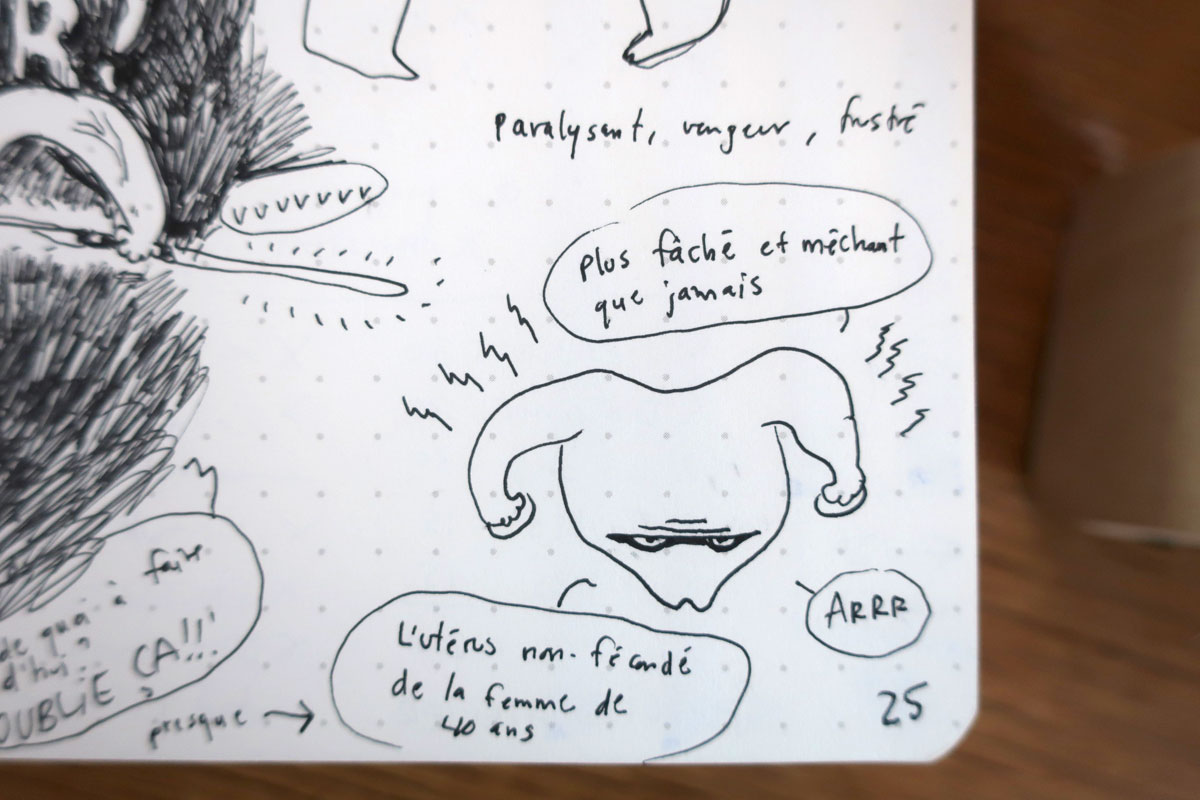 R!
paralysant, vengeur, frustré
vvvvvvv
plus fâché et méchant
que jamais
ARRR
à faire
de quoi
d'hui
OUBLIE ÇA!!!
presque →
L'utérus non-fécondé
de la femme de
40 ans
25